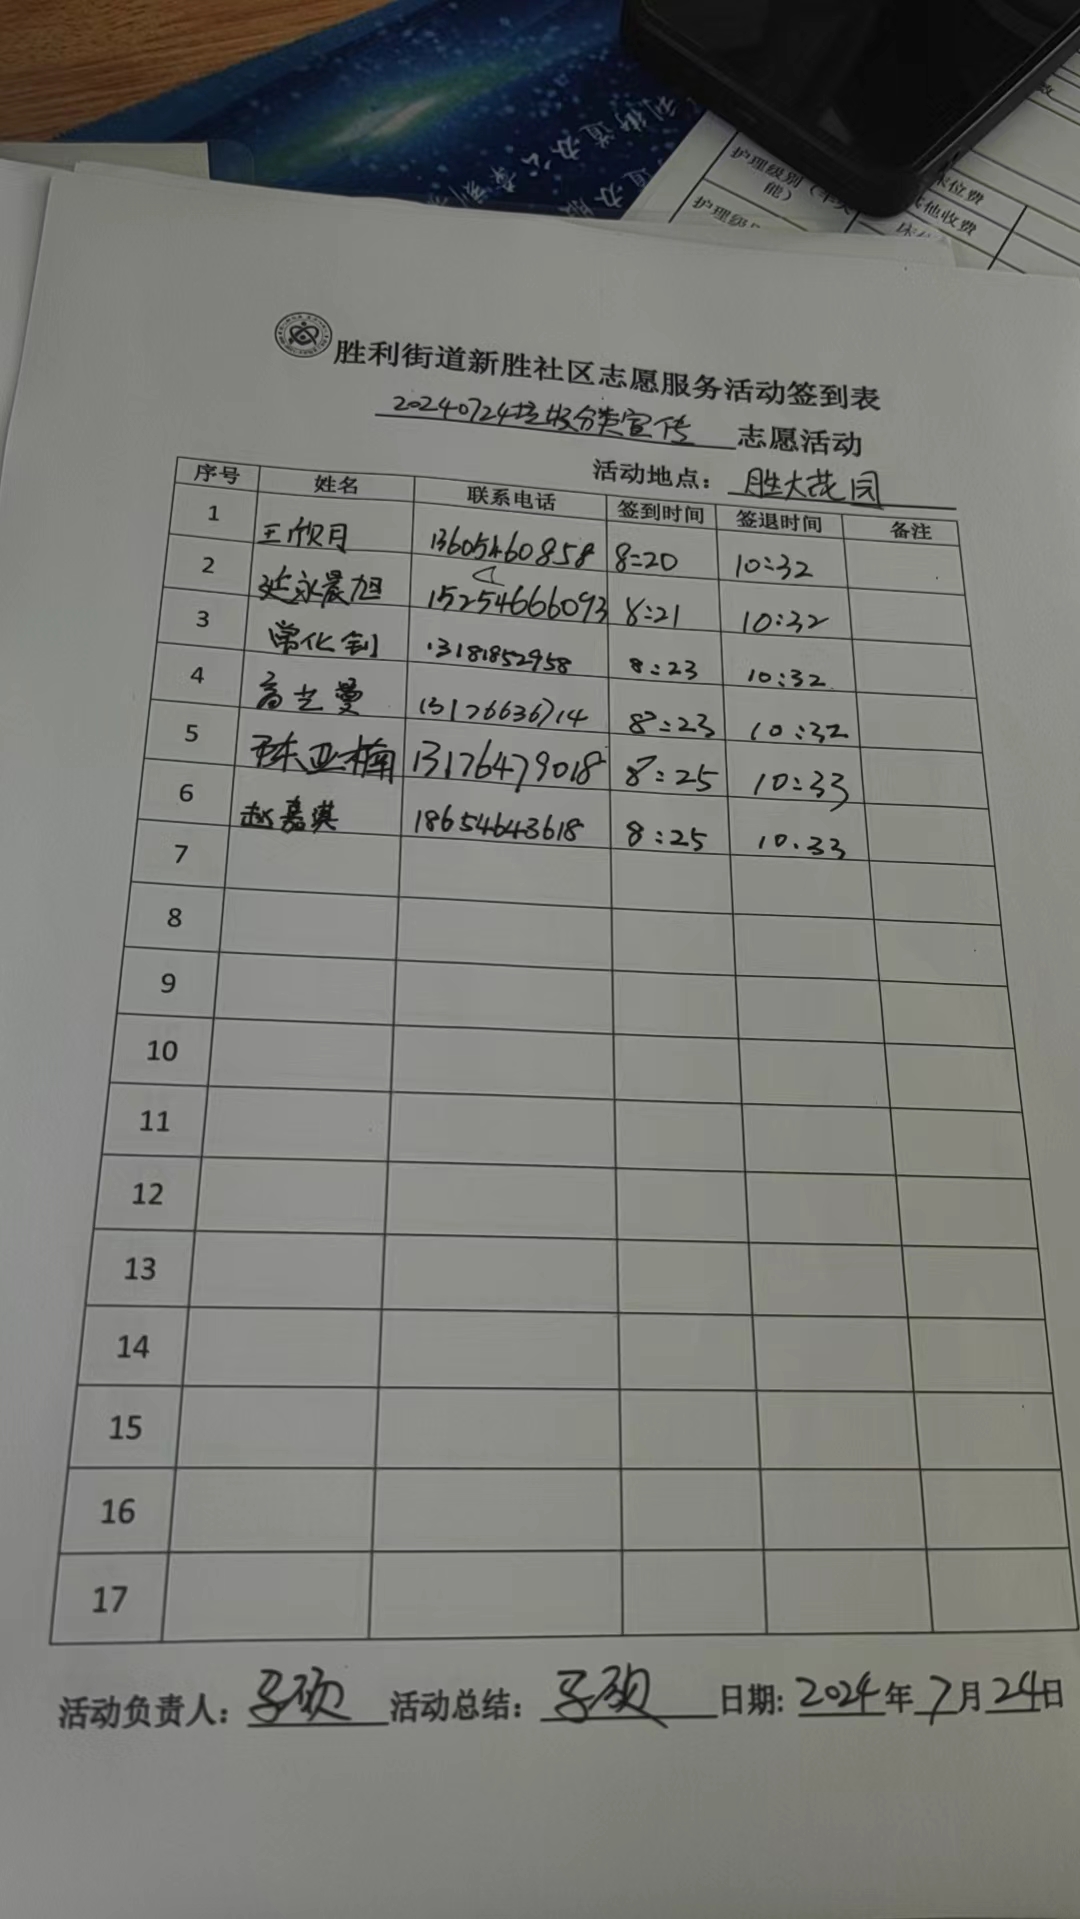 利街道办公
护理级别（
能）
床位费
其他收费
护理级
胜利街道新胜社区志愿服务活动签到表
20240724垃圾分类宣传 志愿活动
活动地点： 胜大花园
序号 姓名 联系电话 签到时间 签退时间 备注
1 王欣月 13605460858 8:20 10:32
2 延永晨旭 15254666093 8:21 10:32
3 常化钊 13181852958 8:23 10:32
4 高艺曼 13176636714 8:23 10:32
5 亚楠 13176479018 8:25 10:33
6 赵嘉淇 18654643618 8:25 10:33
7
8
9
10
11
12
13
14
15
16
17
活动负责人： 活动总结： 日期: 2024年7月24日